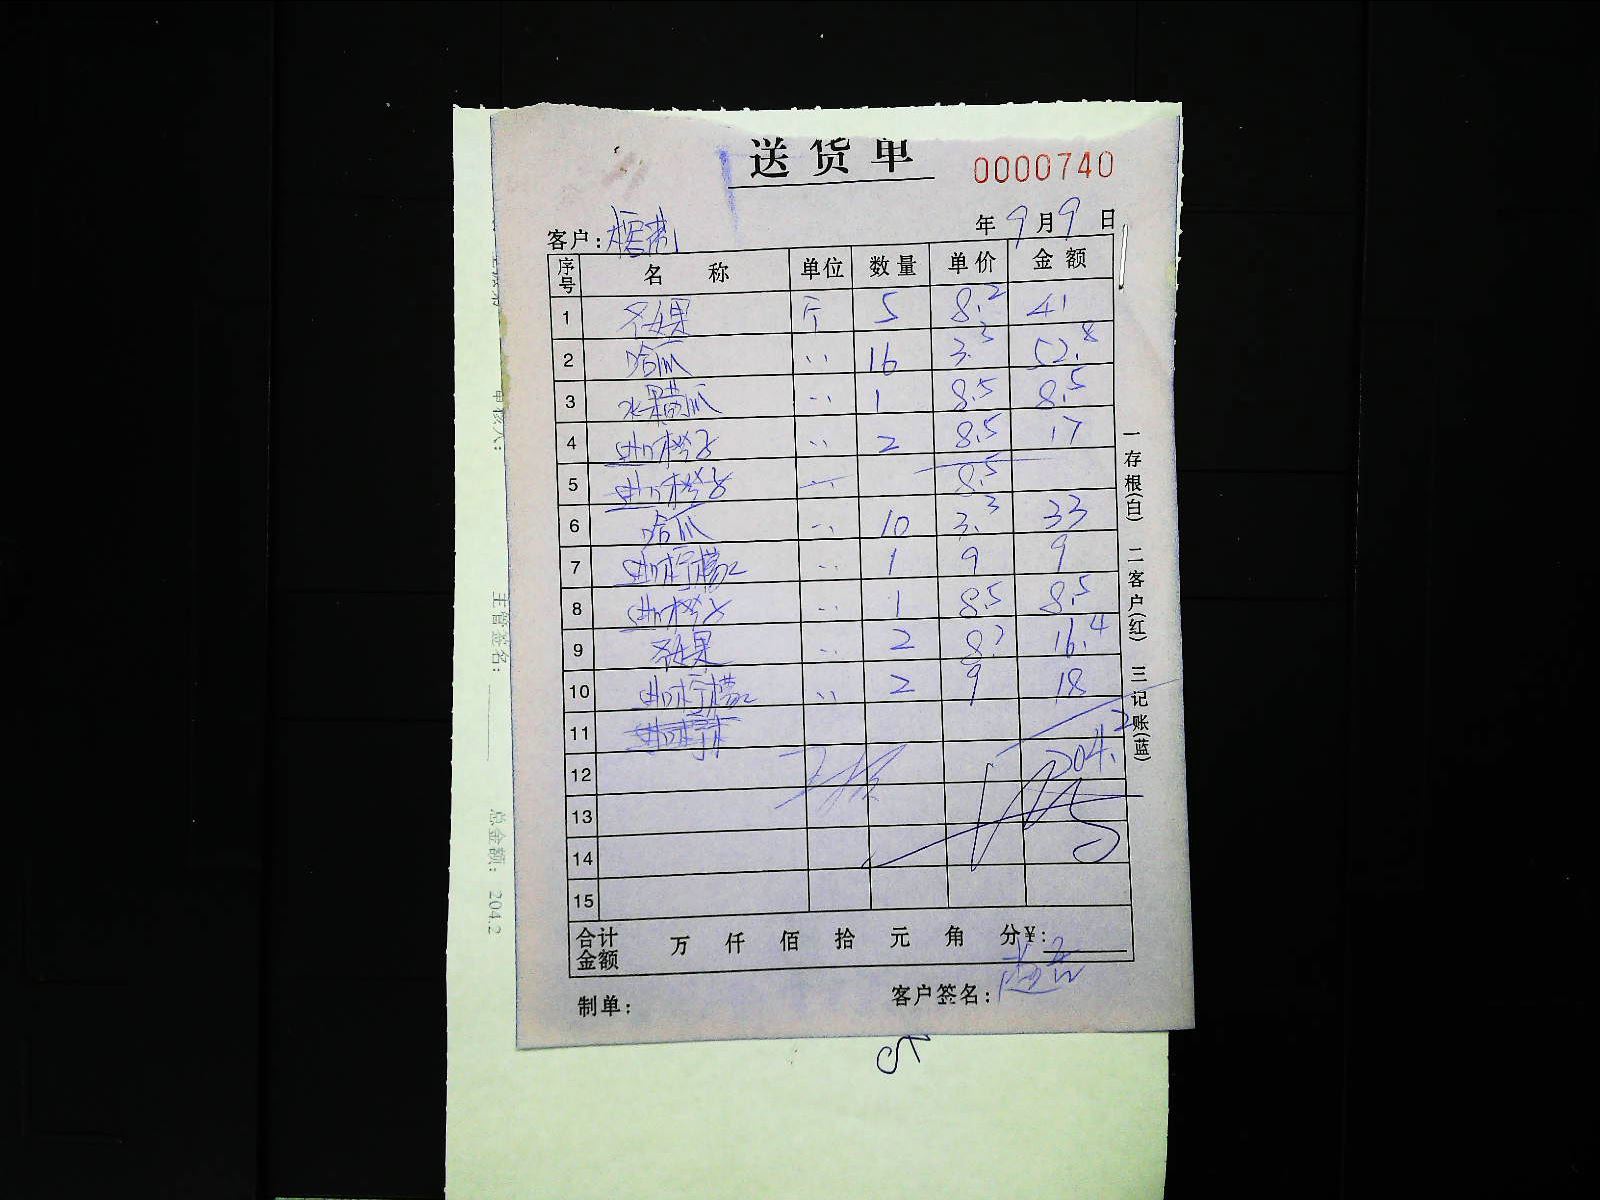 送货单
0000740
客户:
年 9 月 9 日
序号 名 称 单位 数量 单价 金额
1 个 5 8.2 41
2 哈瓜 ,, 16 3.3 52.8
3 水果黄瓜 ,, 1 8.5 8.5
4 橙子 ,, 2 8.5 17
5 橙子 8.5
6 哈瓜 ,, 10 3.3 33
7 柠檬 ,, 1 9 9
8 橙子 ,, 1 8.5 8.5
9 ,, 2 8.2 16.4
10 柠檬 ,, 2 9 18
11
12 204.2
13
14
15
合计金额 万 仟 佰 拾 元 角 分¥:
制单: 客户签名:
一存根(白) 二客户(红) 三记账(蓝)
审核人:
主管签名:
总金额: 204.2